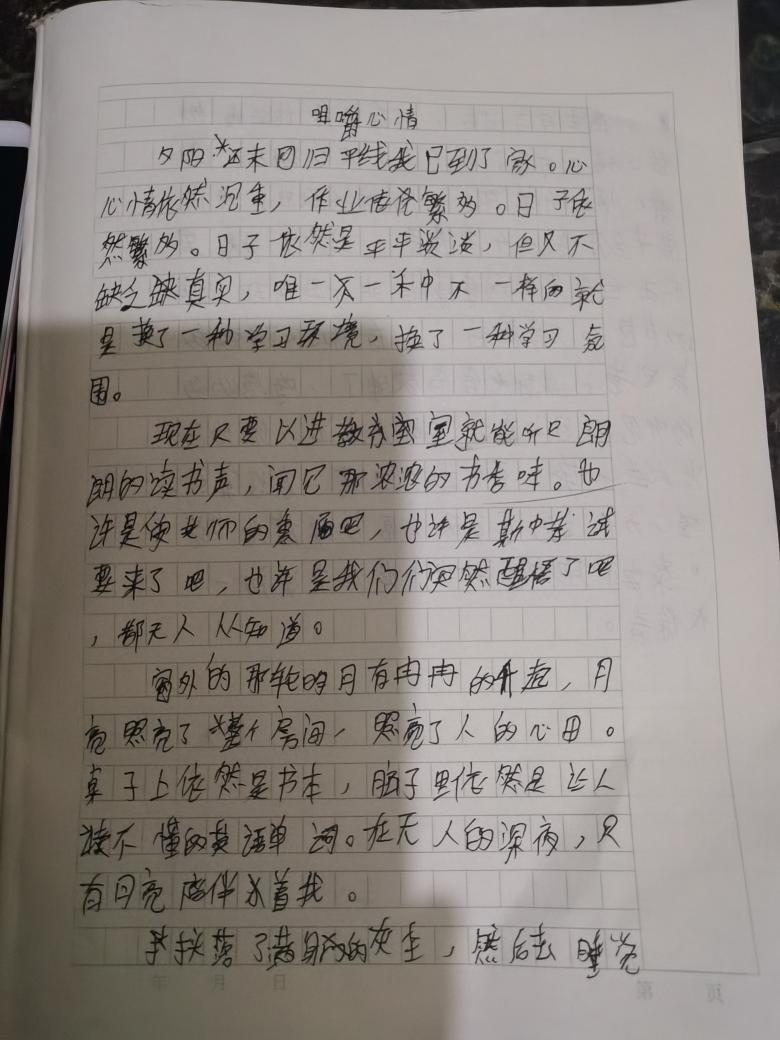 咀嚼心情
夕阳还未回归平线我已到了家。心
心情依然沉重，作业依径繁多。日子依
然繁多。日子依然是平平淡淡，但又不
缺乏缺真实，唯一不一禾中不一样的就
是换了一种学习环境，换了一种学习氛
围。
现在只要以进教室就能听只朗
朗的读书声，闻它那浓浓的书香味。也
许是使老师的 吧，也许是期中考试
要来了吧，也许是我们们突然醒悟了吧
，都无人从知道。
窗外的那轮的月有冉冉的升起，月
亮照亮了整个房间，照亮了人的心田。
桌子上依然是书本，脑子里依然是让人
读不懂的英语单词。在无人的深夜，只
有月亮陪伴着我。
抖落了满身的灰尘，然后去睡觉
年 月 日
第 页